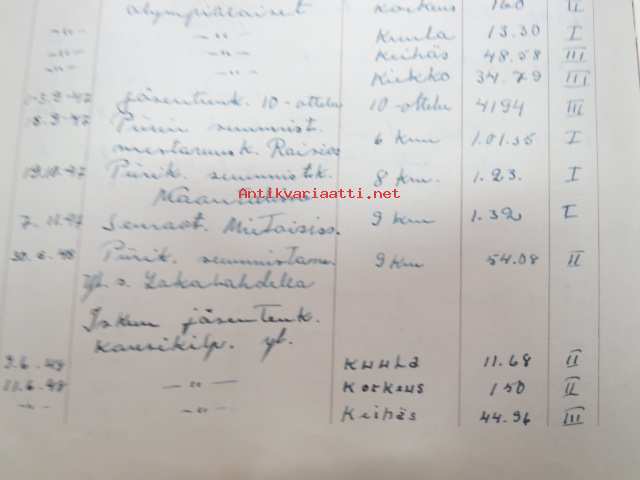 olympialaiset korkeus 160 II
-"- -"- Kuula 13.30 I
-"- -"- Keihäs 48.58 III
-"- Kiekko 34.79 III
1-3.9-47 jäsentenk. 10-ottelu 10-ottelu 4194 III
18.9-47 Piirin suunnist.
mestaruusk. Raisios 6 km 1.01.35 I
19.10.47 Piirik. suunnistk. 8 km. 1.23. I
Antikvariaatti.net
7. 11.47 Seuraot. Mietoisiss. 9 km 1.32 I
30.6.48 Piirik. suunnistam. 9 km 54.08 II
s. Lokalahdella
Iskun jäsentenk.
kansikilp. yl.
9.6.48 Kuula 11.68 II
11.6.48 -"- Korkeus 150 II
-"- -"- Keihäs 44.96 III